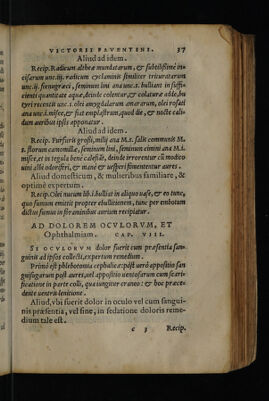 VICTORIS FAVENTINI. 37
Aliud ad idem.
Recip. Radicum altheæ mundatarum, & subtilissime in-
cisarum unc. iij. radicum cyclaminis similiter trituratarum
unc. ij. fœnugræci, seminum lini ana unc. s. bulliant in suffi-
cienti quantitate aquæ, deinde colentur, & colaturæ adde,
& ri recentis unc. s. olei amygdalarum amararum, olei rosati
ana unc. s. misce, & fiat emplastrum, quod die, & nocte cali-
dum auribus ipsis apponatur.
Aliud ad idem.
Recip. Furfuris grossi, milij ana M. s. salis communis M.
s. florum camomillæ, seminum lini, seminum cimini ana M. i.
misce, et in tegula bene calefiāt, deinde irrorentur cū modico
uini albi odoriferi, & mane & uesperi fomententur aures.
Aliud domesticum, & mulieribus familiare, &
optime expertum.
Recip. Olei nucum lib. i. bulliat in aliquo uase, & eo tunc,
quo fumum emittit propter ebullitionem, tunc per embotum
dictus fumus in foraminibus aurium recipiatur.
AD DOLOREM OCVLORVM, ET
Ophthalmiam. CAP. VIII.
SI OCVLORVM dolor fuerit cum præsentia san-
guinis ad ipsos collecti, expertum remedium.
Primo est phlebotomia cephalicæ: post uerò appositio san-
guisugarum post aures, uel appositio uentosarum cum scari-
ficatione in parte colli, qua iungitur craneo: & hoc præce-
dente uentris lenitione.
Aliud, ubi fuerit dolor in oculo vel cum sangui-
nis præsentia, vel sine, in sedatione doloris reme-
dium tale est.
C 3 Recip.